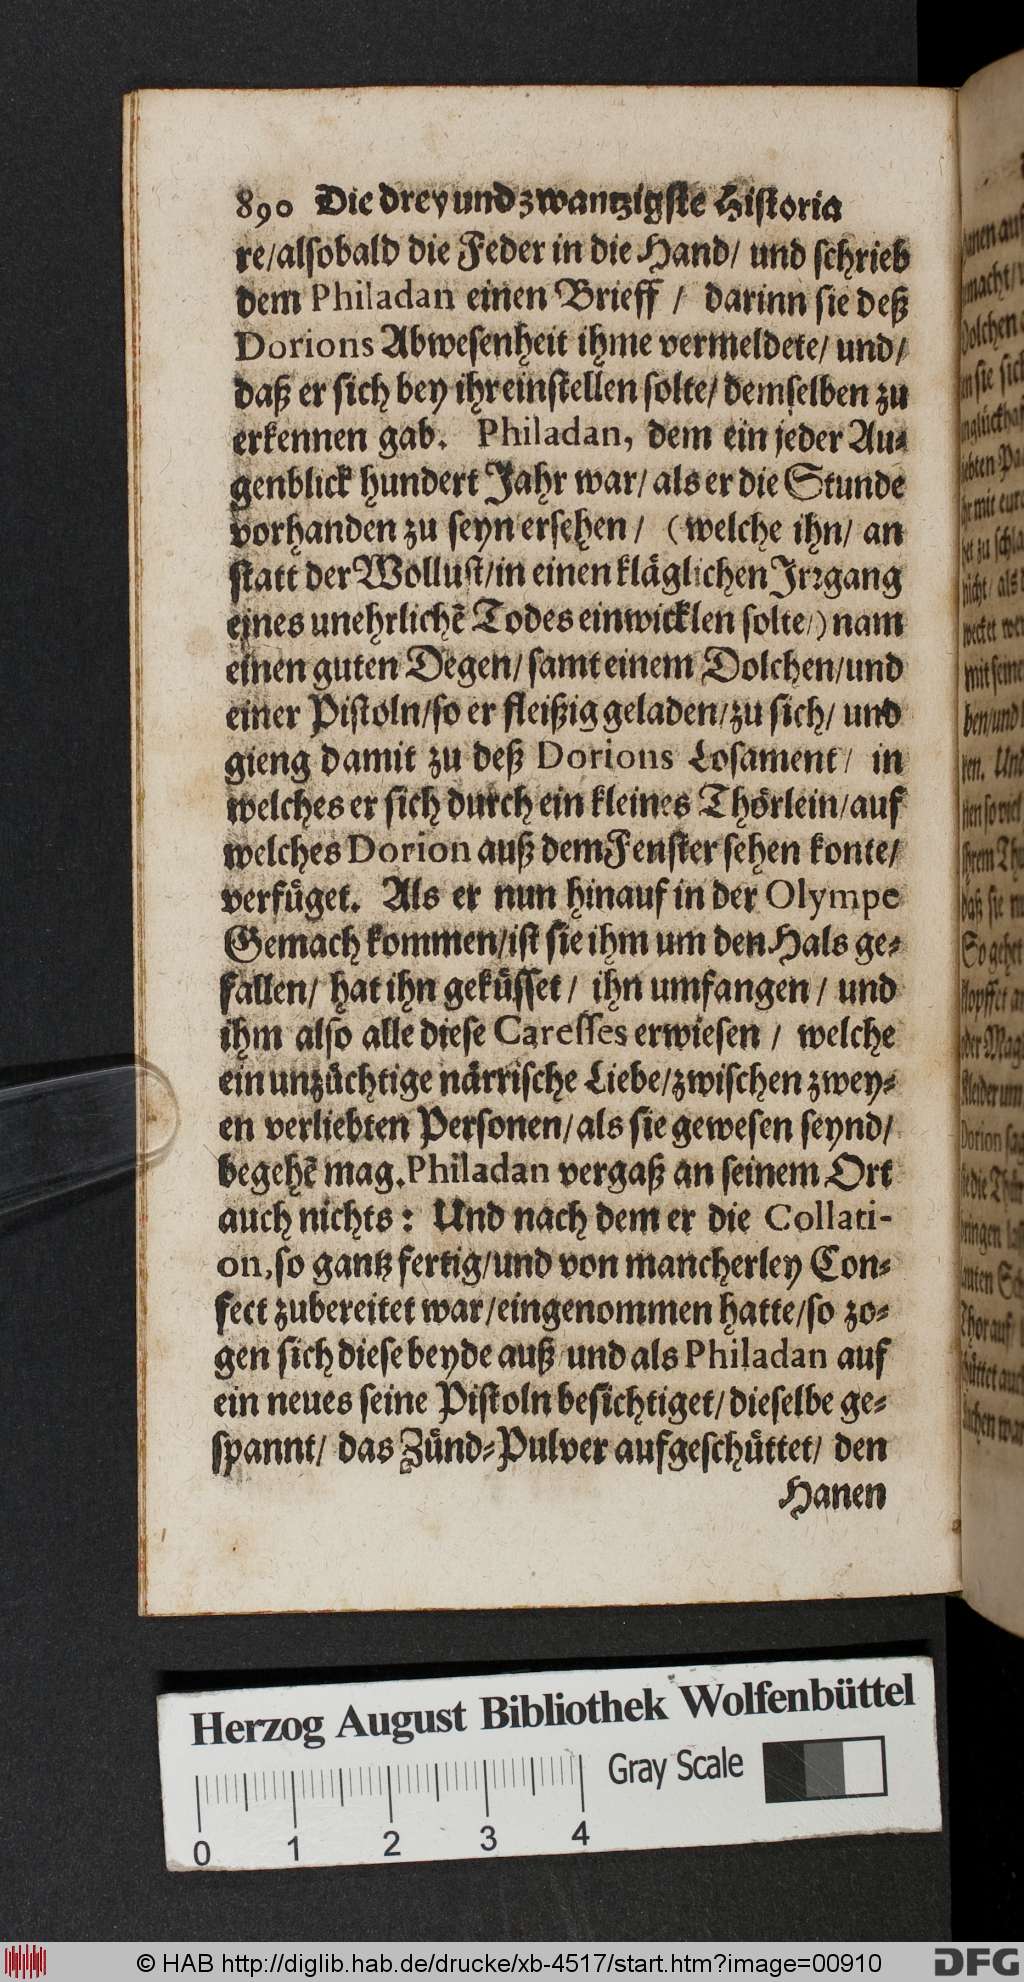 890 Die drey und zwantzigste Historia
re/alsobald die Feder in die Hand/ und schrieb
dem Philadan einen Brieff / darinn sie deß
Dorions Abwesenheit ihme vermeldete/ und/
daß er sich bey ihr einstellen solte/ demselben zu
erkennen gab. Philadan, dem ein jeder Au-
genblick hundert Jahr war/ als er die Stunde
vorhanden zu seyn ersehen / (welche ihn/ an
statt der Wollust/in einen kläglichen Irrgang
eines unehrlichẽ Todes einwicklen solte/) nam
einen guten Degen/ samt einem Dolchen/und
einer Pistoln/so er fleißig geladen/zu sich/ und
gieng damit zu deß Dorions Losament / in
welches er sich durch ein kleines Thörlein/auf
welches Dorion auß dem Fenster sehen konte/
verfüget. Als er nun hinauf in der Olympe
Gemach kommen/ist sie ihm um den Hals ge-
fallen/ hat ihn geküsset / ihn umfangen / und
ihm also alle diese Caresses erwiesen / welche
ein unzüchtige närrische Liebe/zwischen zwey-
en verliebten Personen/als sie gewesen seynd/
begehẽ mag. Philadan vergaß an seinem Ort
auch nichts: Und nach dem er die Collati-
on, so gantz fertig/und von mancherley Con-
fect zubereitet war/eingenommen hatte/so zo-
gen sich diese beyde auß und als Philadan auf
ein neues seine Pistoln besichtiget/ dieselbe ge-
spannt/ das Zünd-Pulver aufgeschüttet/ den
Hanen
Herzog August Bibliothek Wolfenbüttel
Gray Scale
0 1 2 3 4
© HAB http://diglib.hab.de/drucke/xb-4517/start.htm?image=00910
DFG